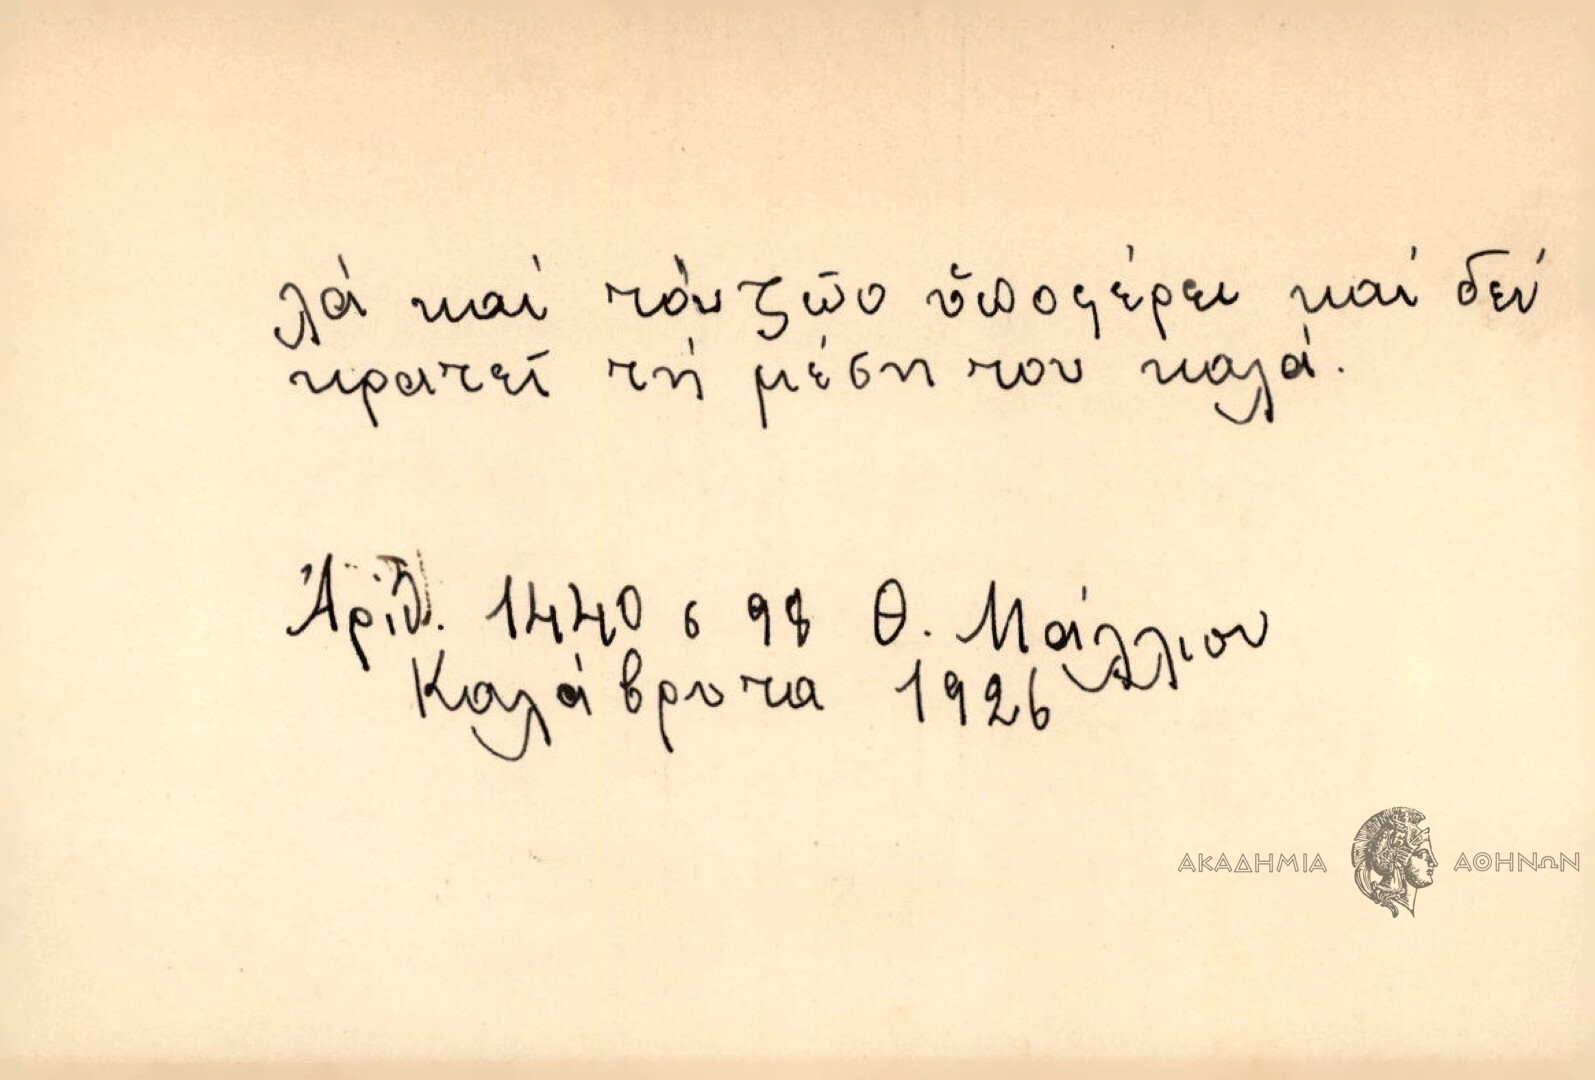 λά καί τό ζῶο ὑποφέρει καί δέν
κρατεῖ τή μέση του καλά.
Ἀριθ. 1440 σ 98 Θ. Μάλλιου
Καλάβρυτα 1926
ΑΚΑΔΗΜΙΑ ΑΘΗΝΩΝ